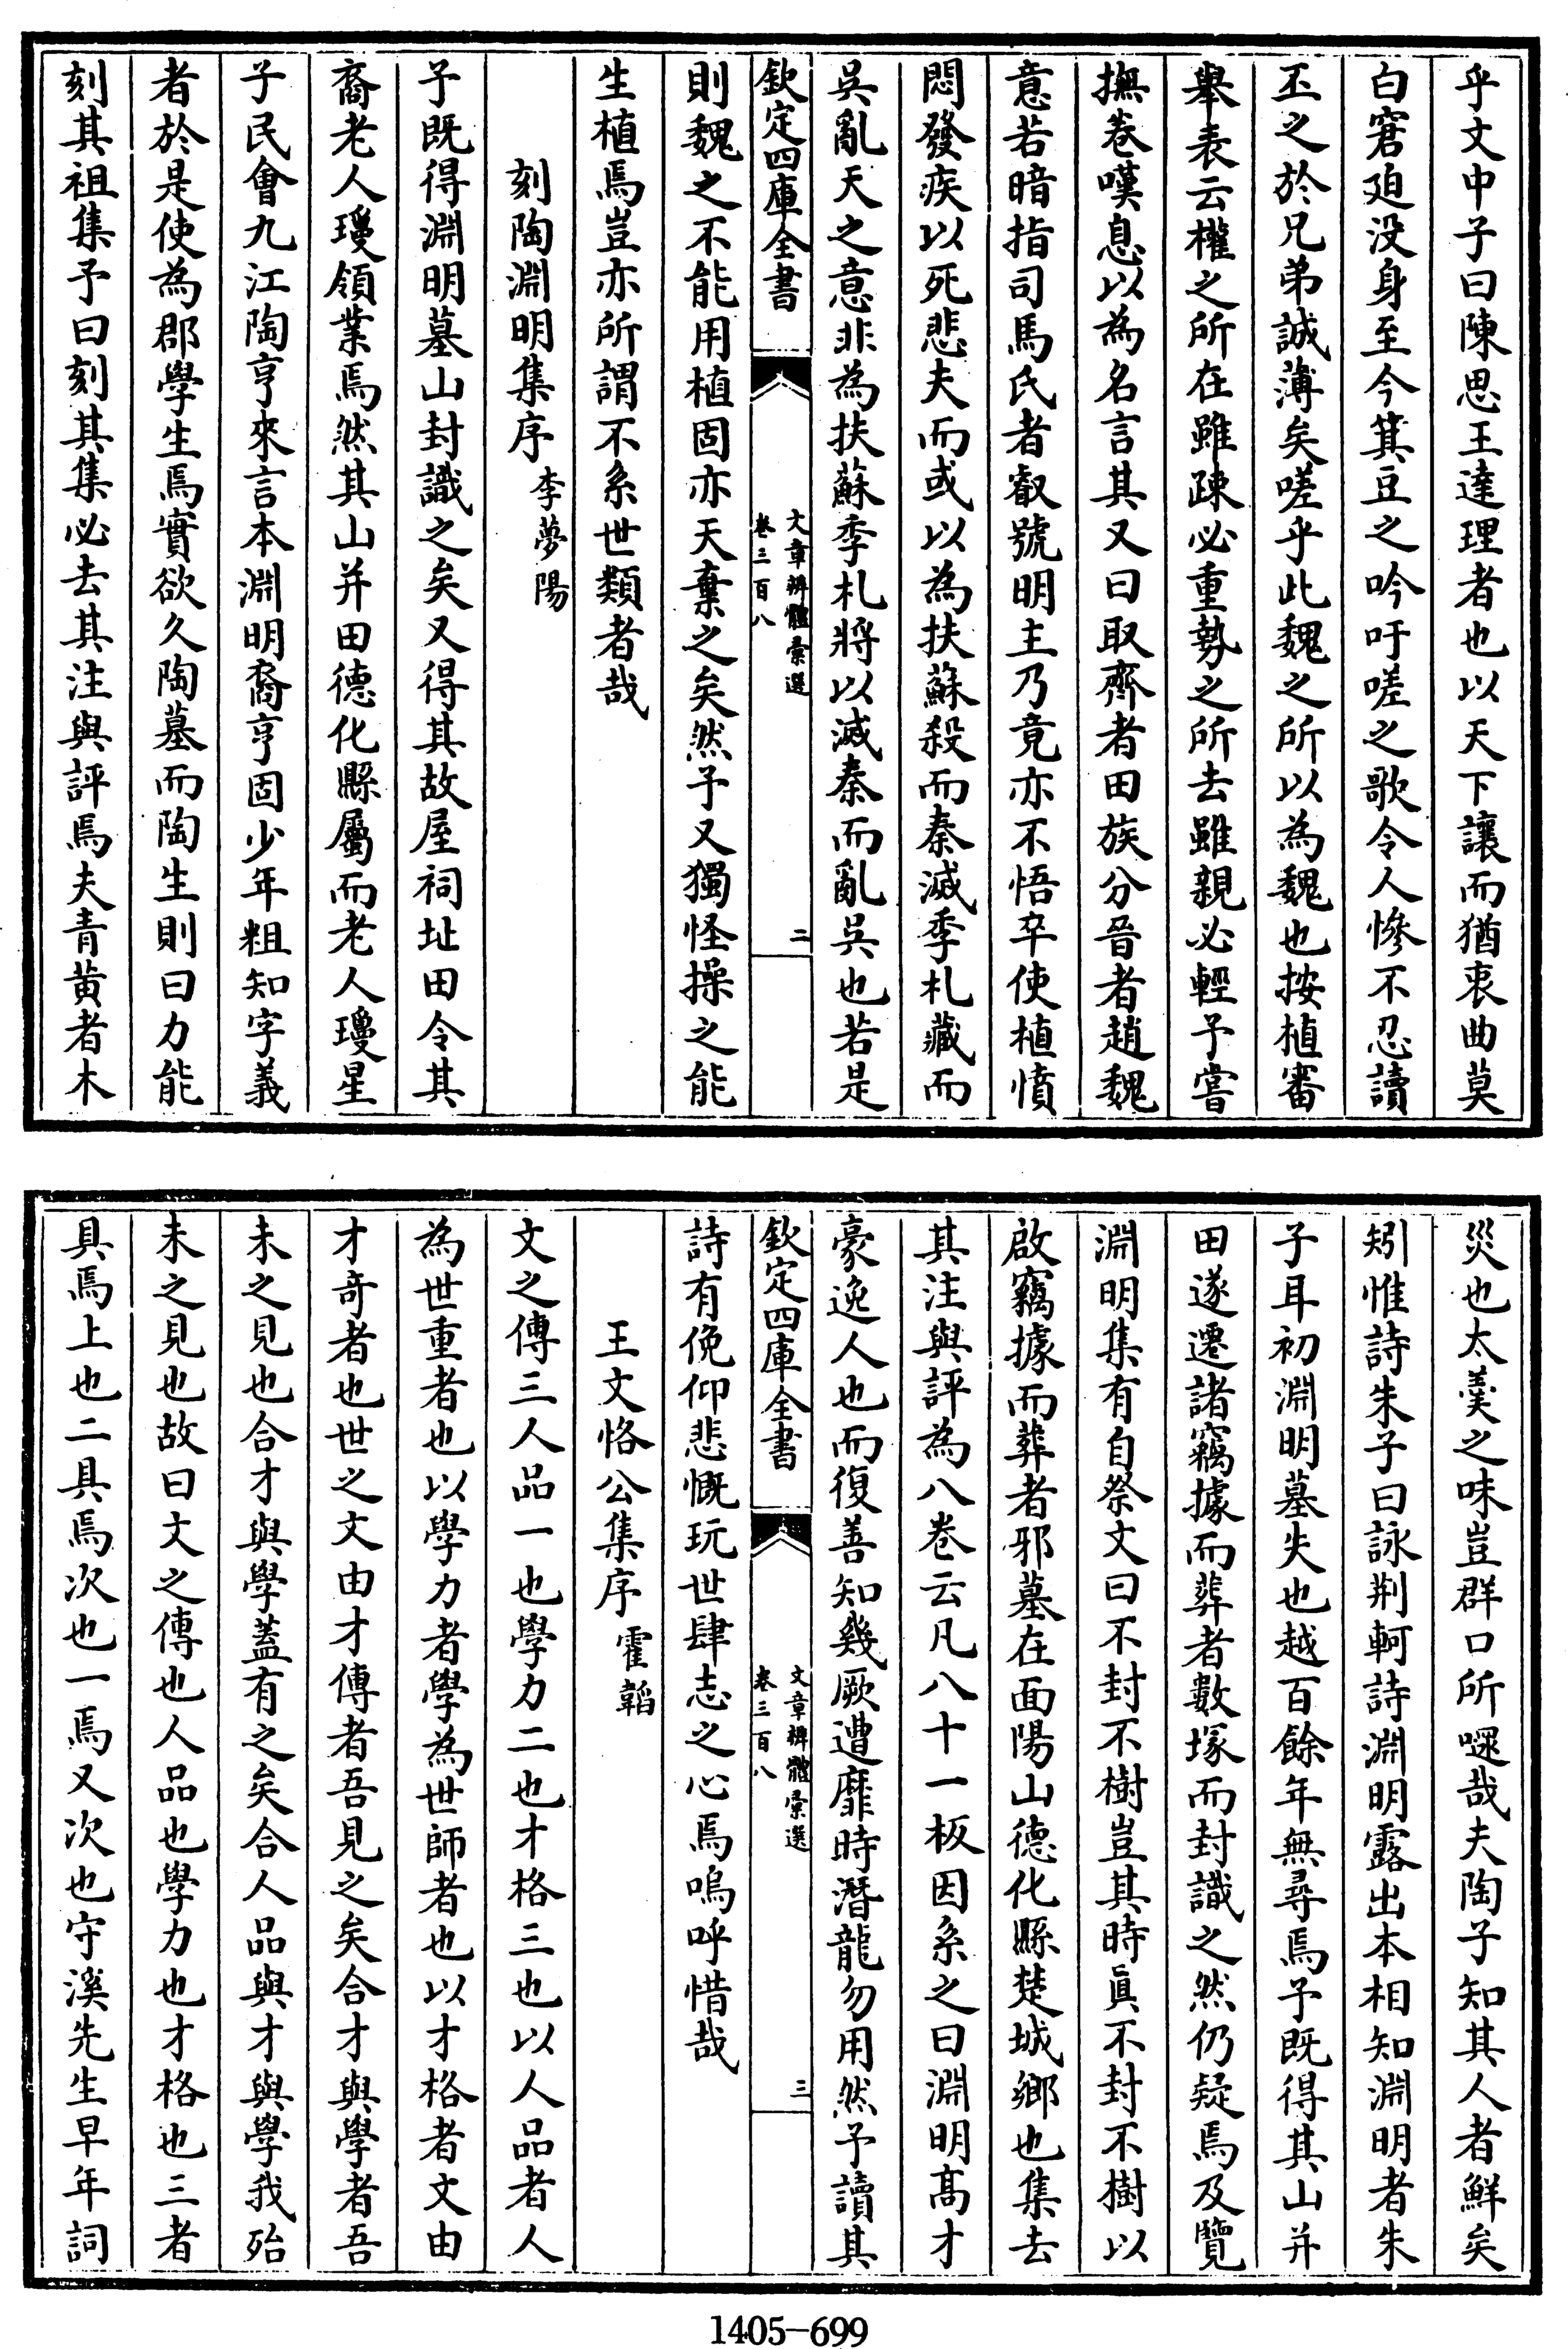 乎文中子曰陳思王達理者也以天下讓而猶衷曲莫
白窘廹没身至今箕豆之吟吁嗟之歌令人慘不忍讀
丕之於兄弟誠薄矣嗟乎此魏之所以為魏也按植審
舉表云權之所在雖疎必重勢之所去雖親必輕予嘗
撫卷嘆息以為名言其又曰取齊者田族分晉者趙魏
意若暗指司馬氏者叡號明主乃竟亦不悟卒使植憤
悶發疾以死悲夫而或以為扶蘇殺而秦滅季札藏而
吳亂天之意非為扶蘇季札將以滅秦而亂吳也若是
欽定四庫全書
文章辨體彚選
卷三百八
二
則魏之不能用植固亦天棄之矣然予又獨怪操之能
生植焉豈亦所謂不系世類者哉
刻陶淵明集序 李夢陽
予既得淵明墓山封識之矣又得其故屋祠址田令其
裔老人瓊領業焉然其山并田德化縣屬而老人瓊星
子民會九江陶亨來言本淵明裔亨固少年粗知字義
者於是使為郡學生焉實欲久陶墓而陶生則曰力能
刻其祖集予曰刻其集必去其注與評焉夫青黄者木
災也太羹之味豈群口所嚃哉夫陶子知其人者鮮矣
矧惟詩朱子曰詠荆軻詩淵明露出本相知淵明者朱
子耳初淵明墓失也越百餘年無尋焉予既得其山并
田遂遷諸竊據而葬者數塚而封識之然仍疑焉及覽
淵明集有自祭文曰不封不樹豈其時眞不封不樹以
啟竊據而葬者邪墓在面陽山德化縣楚城鄉也集去
其注與評為八卷云凡八十一板因系之曰淵明髙才
豪逸人也而復善知幾厥遭靡時潛龍勿用然予讀其
欽定四庫全書
文章辨體彚選
卷三百八
三
詩有俛仰悲慨玩世肆志之心焉嗚呼惜哉
王文恪公集序 霍韜
文之傳三人品一也學力二也才格三也以人品者人
為世重者也以學力者學為世師者也以才格者文由
才奇者也世之文由才傳者吾見之矣合才與學者吾
未之見也合才與學蓋有之矣合人品與才與學我殆
未之見也故曰文之傳也人品也學力也才格也三者
具焉上也二具焉次也一焉又次也守溪先生早年詞
1405-699